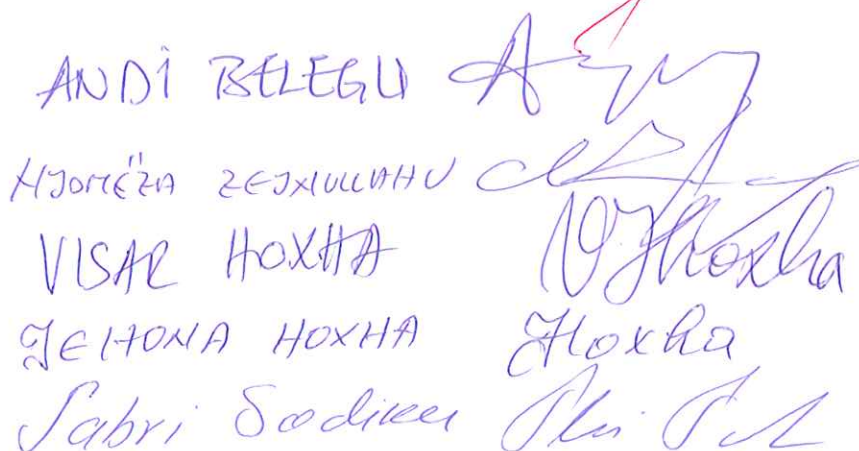 ANDI BELEGU
NJOMËZA ZEJNULLAHU
VISAR HOXHA VHoxha
JEHONA HOXHA JHoxha
Sabri Sadiku